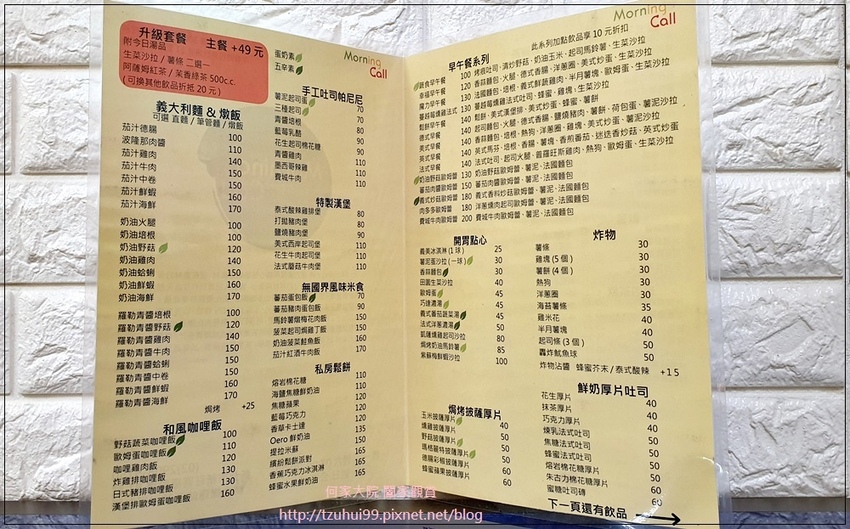 升級套餐 主餐 +49 元
附今日湯品
生菜沙拉 / 薯條 二選一
阿薩姆紅茶 / 茉香綠茶 500c.c.
( 可換其他飲品折抵 20 元 )
義大利麵 & 燉飯
可選 直麵 / 筆管麵 / 燉飯
茄汁德腸 100
波隆那肉醬 110
茄汁雞肉 140
茄汁牛肉 150
茄汁中卷 150
茄汁鮮蝦 160
茄汁海鮮 170
奶油火腿 100
奶油培根 100
奶油野菇 120
奶油雞肉 140
奶油蛤蜊 150
奶油鮮蝦 160
奶油海鮮 170
羅勒青醬培根 100
羅勒青醬野菇 120
羅勒青醬雞肉 140
羅勒青醬牛肉 150
羅勒青醬蛤蜊 150
羅勒青醬中卷 150
羅勒青醬鮮蝦 160
羅勒青醬海鮮 170
焗烤 +25
和風咖哩飯
野菇蔬菜咖哩飯 100
歐姆蛋咖哩飯 110
咖哩雞肉飯 120
炸雞排咖哩飯 130
日式豬排咖哩飯 130
漢堡排歐姆蛋咖哩飯 160
Morning Call
蛋奶素
五辛素
手工吐司帕尼尼
薯泥起司蛋 70
三種起司 70
青醬培根 90
藍莓乳酪 80
花生起司棉花糖 90
青醬雞肉 110
墨西哥辣雞 110
費城牛肉 110
特製漢堡
泰式酸辣雞排堡 80
打拋豬肉堡 90
鹽燒豬肉堡 90
美式西岸起司堡 110
花生牛肉起司堡 110
法式蘑菇牛肉堡 110
無國界風味米食
蕃茄蛋包飯 70
蕃茄豬肉蛋包飯 90
馬鈴薯燉梅花肉飯 150
菠菜起司焗雞丁飯 150
奶油菠菜鮭魚飯 160
茄汁紅酒牛肉飯 170
私房鬆餅
熔岩棉花糖 110
海鹽焦糖鮮奶油 110
焦糖蘋果 120
藍莓巧克力 120
香草卡士達 135
Oero 鮮奶油 150
提拉米蘇 165
繽紛鬆餅派對 165
香蕉巧克力冰淇淋 165
蜂蜜水果鮮奶油 165
Morning Call
此系列加點飲品享 10 元折扣
早午餐系列
蔬食早午餐 100 烤麻吐司、清炒野菇、奶油玉米、起司馬鈴薯、生菜沙拉
幸福早午餐 120 香蒜麵包、火腿、德式香腸、洋蔥圈、美式炒蛋、生菜沙拉
魔力早午餐 130 香蒜麵包、培根、義式鮮蔬雞肉、半月薯塊、歐姆蛋、生菜沙拉
蔓越莓燻雞法式 130 蔓越莓燻雞法式吐司、蜂蜜、雞塊、生菜沙拉
鬆餅早午餐 140 鬆餅、美式漢堡排、美式炒蛋、蜂蜜、薯餅
德式早午餐 140 起司麵包、火腿、德式香腸、鹽燒豬肉、薯餅、荷包蛋、生菜沙拉
美式早午餐 140 香蒜麵包、培根、熱狗、洋蔥圈、雞塊、美式炒蛋、薯泥沙拉
英式早午餐 140 英式馬芬、培根、香腸、薯塊、香煎蕃茄、迷迭香炒菇、英式炒蛋
法式早午餐 140 法式吐司、起司火腿、首羅旺斯雞肉、熱狗、歐姆蛋、生菜沙拉
奶油野菇歐姆蕾 130 奶油野菇歐姆蕾、薯泥、法國麵包
蕃茄肉醬歐姆蕾 150 蕃茄肉醬歐姆蕾、薯泥、法國麵包
義式炒菇歐姆蕾 180 義式香料炒菇歐姆蕾、薯泥、法國麵包
肉多多歐姆蕾 180 蕃蔥燻肉起司歐姆蕾、薯泥、法國麵包
費城牛肉歐姆蕾 200 費城牛肉歐姆蕾、薯泥、法國麵包
開胃點心
義美冰淇淋 (1 球) 25
薯泥蛋沙拉 (一球) 30
香蒜麵包 30
田園生菜沙拉 40
歐姆蛋 40
巧達濃湯 45
義式蕃茄蔬菜湯 45
法式洋蔥濃湯 50
凱薩燻雞起司沙拉 80
焗烤奶油馬鈴薯 75
紫蘇梅鮮蝦沙拉 85
炸物
薯條 30
雞塊 ( 5 個 ) 30
薯餅 ( 4 個 ) 30
熱狗 30
洋蔥圈 30
海苔薯條 35
雞米花 40
半月薯塊 40
起司條 ( 3 個 ) 50
轟炸魷魚球 50
炸物沾醬 蜂蜜芥末 / 泰式酸辣 +15
焗烤披薩厚片
玉米披薩厚片 40
燻雞披薩厚片 50
野菇披薩厚片 50
瑪格麗特披薩厚片 50
德腸彩椒披薩厚片 60
蜂蜜蘋果披薩厚片 60
鮮奶厚片吐司
花生厚片 40
抹茶厚片 40
巧克力厚片 40
煉乳法式吐司 50
焦糖法式吐司 50
蜂蜜法式吐司 50
熔岩棉花糖厚片 60
朱古力棉花糖厚片 60
蜜糖吐司磚 60
下一頁還有飲品
何家大院 闔家觀賞
http://tzuhui99.pixnet.net/blog